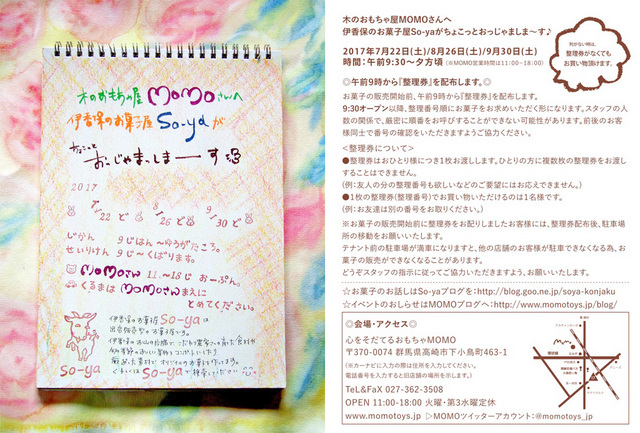 木のおもちゃ屋 MOMOさんへ
伊香保のお菓子屋 So-yaが
ちょこっと
おっじゃましまーーす
2017
7/22 と 8/26 と 9/30 と
じかん 9じはん〜ゆうがたころ。
せいりけん 9じ〜くばります。
MOMOさん 11〜18じ おーぷん。
くるまは MOMOさんまえに
とめてください。
伊香保のお菓子屋 So-yaは
So-ya
木のおもちゃ屋MOMOさんへ
伊香保のお菓子屋So-yaがちょこっとおっじゃましま〜す♪
2017年7月22日(土)/8月26日(土)/9月30日(土)
時間:午前9:30〜夕方頃 (※MOMO営業時間は11:00−18:00)
列がない時は、
整理券がなくても
お買い物頂けます。
◎午前9時から『整理券』を配布します。
お菓子の販売開始前、午前9時から『整理券』を配布します。
9:30オープン以降、整理番号順にお菓子をお求めいただく形になります。スタッフの人
数の関係で、厳密に順番をお呼びすることができない可能性があります。前後のお客
様同士で番号の確認をいただきますようご協力ください。
<整理券について>
●整理券はおひとり様につき1枚お渡しします。ひとりの方に複数枚の整理券をお渡し
することはできません。
(例:友人の分の整理番号も欲しいなどのご要望にはお応えできません。)
●1枚の整理券(整理番号)でお買い物いただけるのは1名様です。
(例:お友達は別の番号をお取りください。)
※お菓子の販売開始前に整理券をお配りしましたお客様には、整理券配布後、駐車場
所の移動をお願いいたします。
テナント前の駐車場が満車になりますと、他の店舗のお客様が駐車できなくなる為、お
菓子の販売ができなくなることがあります。
どうぞスタッフの指示に従ってご協力いただきますよう、お願いいたします。
☆お菓子のお話しはSo-yaブログを:http://blog.goo.ne.jp/soya-konjaku
☆イベントのおしらせはMOMOブログへ:http://www.momotoys.jp/blog/
◎会場・アクセス◎
心をそだてるおもちゃMOMO
〒370-0074 群馬県高崎市下小鳥町463-1
(※カーナビに入力の際は住所を入力してください。
電話番号を入力すると旧店舗の場所を示します。)
Tel&FaX 027-362-3508
OPEN 11:00-18:00 火曜・第3水曜定休
www.momotoys.jp ▷MOMOツイッターアカウント:@momotoys_jp